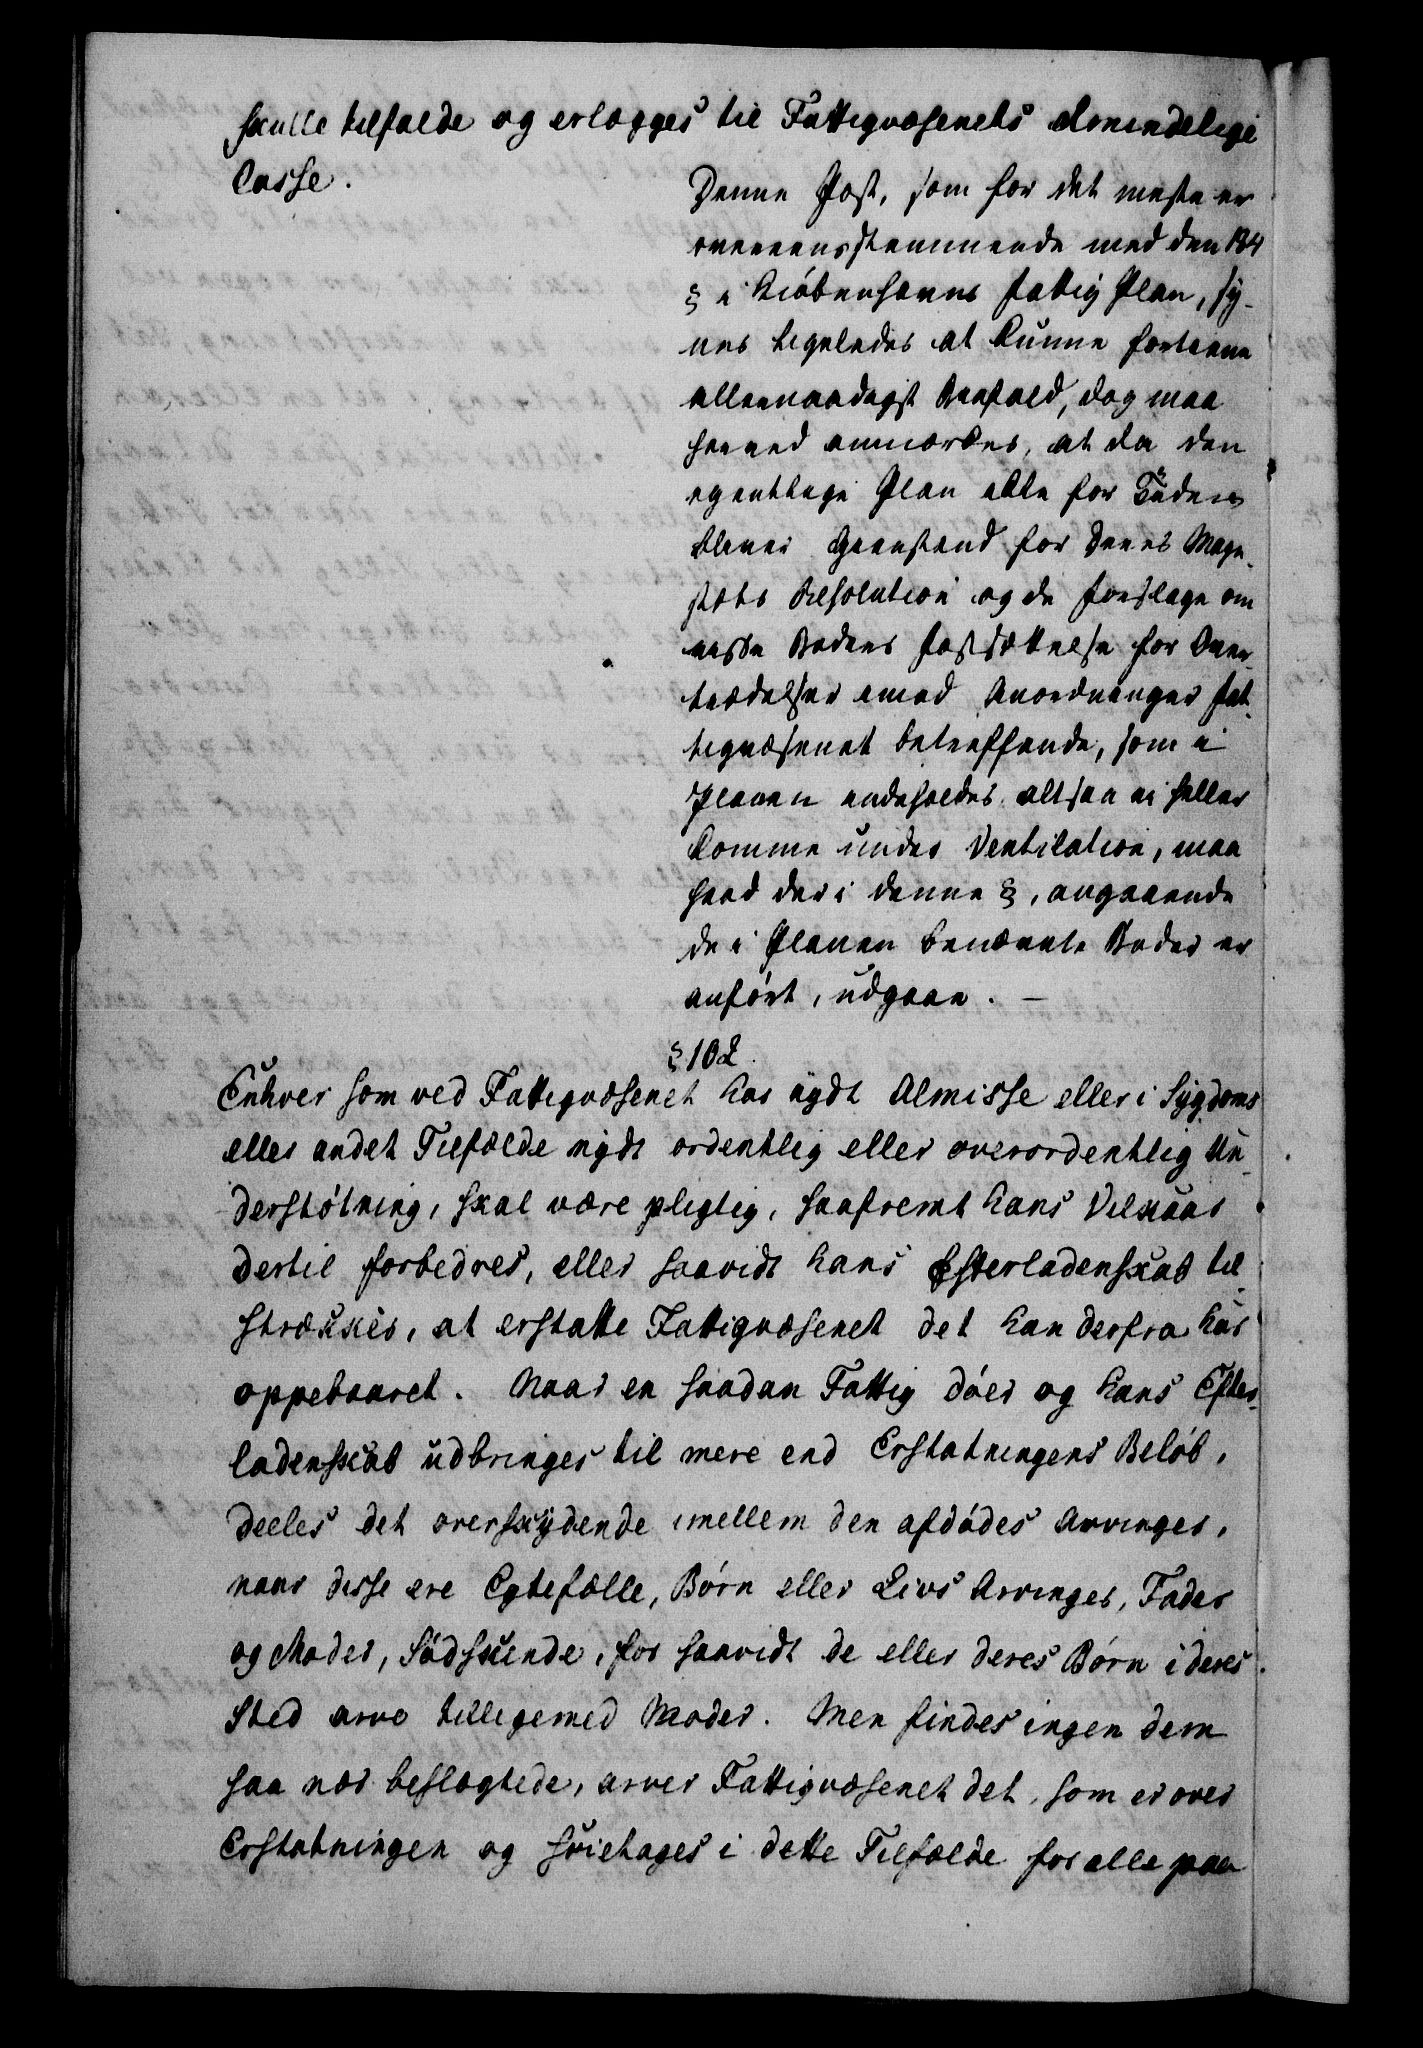 skulle tilfalde og erlægges til Fattigvæsenets almindelige
Casse.
Denne Post, som for det meste er
overeensstemmende med den 184
§ i Kiøbenhavns Fattig Plan, sy-
nes ligeledes at kunne fortiene
allernaadigst Bifald, dog maa
herved anmærkes, at da den
egentlige Plan ikke for
bliver Gienstand for Deres Maje-
stæts Resolution og de Forslage om
visse Bøders Fastsættelse for Over-
trædelser imod Anordninger Fat-
tigvæsenet betreffende, som i
Planen indeholdes altsaa ei heller
komme under Ventilation, maa
hvad der i denne §, angaaende
de i Planen benævnte Bøder er
anført, udgaae. —
§ 102.
Enhver som ved Fattigvæsenet har nydt Almisse eller i Sygdoms
eller andet Tilfælde nydt ordentlig eller overordentlig Un-
derstøtning, skal være pligtig, saafremt hans Vilkaar
dertil forbedres, eller saavidt hans Efterladenskab til-
strækker, at erstatte Fattigvæsenet det han derfra har
oppebaaret. Naar en saadan Fattig døer og hans Efter-
ladenskab udbringes til mere end Erstatningens Beløb,
deeles det overskydende imellem den afdødes Arvinger,
naar disse ere Egtefælle, Børn eller Livs Arvinger, Fader
og Moder, Sødskende, for saavidt de eller deres Børn i deres
Sted arve tilligemed Moder. Men findes ingen dem
saa nær beslægtede, arver Fattigvæsenet det, som er over
Erstatningen og frietages i dette Tilfælde for alle paa